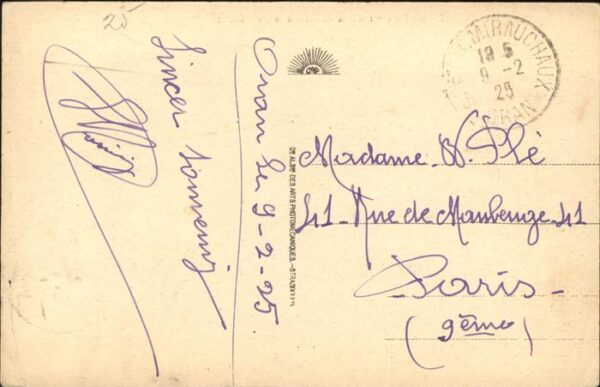 25
Oran le 9-2-25
Sincer souvenir
MIRAUCHAUX
19 5
9 -2
25
ORAN
DES ARTS PHOTOMECANIQUES
Madame W. Plé
41 - Rue de Maubeuge - 41
Paris
(9ème)